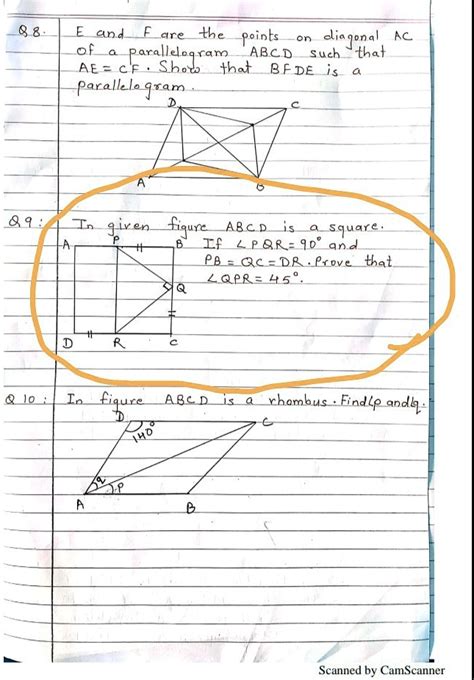 Q8. E and F are the points on diagonal AC
of a parallelogram ABCD such that
AE = CF. Show that BFDE is a
parallelogram.
D C
A B
Q9: In given figure ABCD is a square.
A P B If ∠PQR = 90° and
PB = QC = DR. Prove that
Q ∠QPR = 45°.
D R C
Q 10: In figure ABCD is a rhombus. Find ∠p and ∠q.
D C
140°
q
p
A B
Scanned by CamScanner